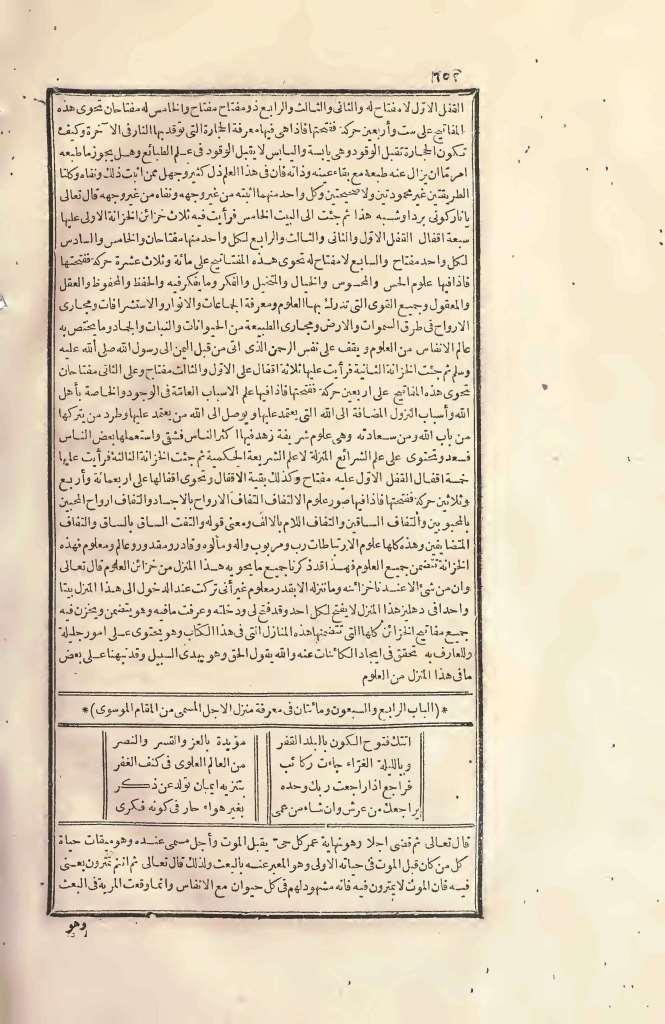 ٦٠٢
القفل الاول لا مفتاح له والثانى والثالث والرابع ذو مفتاح مفتاح والخامس له مفتاحان تحوى هذه
المفاتيح على ست وأربعين حركة ففتحتها فاذا هى فيها معرفة الحجارة التى توقد بها النار فى الآخرة وكيف
تكون الحجارة تقبل الوقود وهى يابسة واليابس لا يقبل الوقود فى علم الطبائع وهل يجوز ما طبعه
امر ما ان يزال عنه طبعه مع بقاء عينه وذاته فان فى هذا العلم ذل كثير وجهل ممن اثبت ذلك ونفاه وكلتا
الطريقتين غير محمودتين ولا صحيحتين وكل واحد منهما اثبته من غير وجهه ونفاه من غير وجهه قال تعالى
يا نار كونى بردا وشبه هذا ثم جئت الى البيت الخامس فرأيت فيه ثلاث خزائن الخزانة الاولى عليها
سبعة اقفال القفل الاول والثانى والثالث والرابع لكل واحد منها مفتاحان والخامس والسادس
لكل واحد مفتاح والسابع لا مفتاح له تحوى هذه المفاتيح على مائة وثلاث عشرة حركة ففتحتها
فاذا فيها علوم الحس والمحسوس والخيال والمتخيل والفكر وما يفكر فيه والحفظ والمحفوظ والعقل
والمعقول وجميع القوى التى تدرك بها العلوم ومعرفة الجماعات والانوار والاستشراقات ومجارى
الارواح فى طرق السموات والارض ومجارى الطبيعة من الحيوانات والنبات والجماد وما يختص به
عالم الانفاس من العلوم ويقف على نفس الرحمن الذى اتى من قبل اليمن الى رسول الله صلى الله عليه
وسلم ثم جئت الخزانة الثانية فرأيت عليها ثلاثة اقفال على الاول والثالث مفتاح وعلى الثانى مفتاحان
تحوى هذه المفاتيح على اربعين حركة ففتحتها فاذا فيها علم الاسباب العامة فى الوجود والخاصة بأهل
الله وأسباب النزول المضافة الى الله التى يعتمد عليها ويوصل الى الله من يعتمد عليها وطرد من يتركها
من باب الله ومن سعادته وهى علوم شريفة زهد فيها اكثر الناس فشقى واستعملها بعض الناس
فسعد وتحتوى على علم الشرائع المنزلة لا علم الشريعة الحكمية ثم جئت الخزانة الثالثة فرأيت عليها
خمسة اقفال القفل الاول عليه مفتاح وكذلك بقية الاقفال وتحوى اقفالها على اربعمائة وأربع
وثلاثين حركة ففتحتها فاذا فيها صور علوم الالتفاف التفاف الارواح بالاجساد والتفاف ارواح المحبين
بالمحبوبين والتفاف الساقين والتفاف اللام بالالف ومعنى قوله والتفت الساق بالساق والتفاف
المتضايفين وهذه كلها علوم الارتباطات رب ومربوب واله ومألوه وقادر ومقدور وعالم ومعلوم فهذه
الخزانة تتضمن جميع العلوم فهذا قد ذكرنا جميع ما يحويه هذا المنزل من خزائن العلوم قال تعالى
وان من شئ الا عندنا خزائنه وما ننزله الا بقدر معلوم غير أنى تركت عند الدخول الى هذا المنزل بيتا
واحدا فى دهليز هذا المنزل لا يفتح لكل احد وقد فتح لى ودخلته وعرفت ما فيه وهو يتضمن ويخزن فيه
جميع مفاتيح الخزائن كلها التى تتضمنها هذه المنازل التى فى هذا الكتاب وهو يحتوى على امور جليلة
وللعارف به تحقق فى ايجاد الكائنات عنه والله يقول الحق وهو يهدى السبيل وقد نبهنا على بعض
ما فى هذا المنزل من العلوم
*(الباب الرابع والسبعون ومائتان فى معرفة منزل الاجل المسمى من المقام الموسوى)*
اتتك فتوح الكون بالبلد القفر مؤيدة بالعز والقسر والنصر
وبالليلة الغراء جاءت ركائب من العالم العلوى فى كنف الغفر
فراجع اذا راجعت ربك وحده بتنزيه ايمان تولد عن ذكر
يراجعك من عرش وان شاء من عمى بغير هواء حار فى كونه فكرى
قال تعالى ثم قضى اجلا وهو نهاية عمر كل حى يقبل الموت وأجل مسمى عنده وهو ميقات حياة
كل من كان قبل الموت فى حياته الاولى وهو المعبر عنه بالبعث ولذلك قال تعالى ثم انتم تمترون يعنى
فيه فان الموت لا يمترون فيه فانه مشهود لهم فى كل حيوان مع الانفاس وانما وقعت المرية فى البعث
وهو